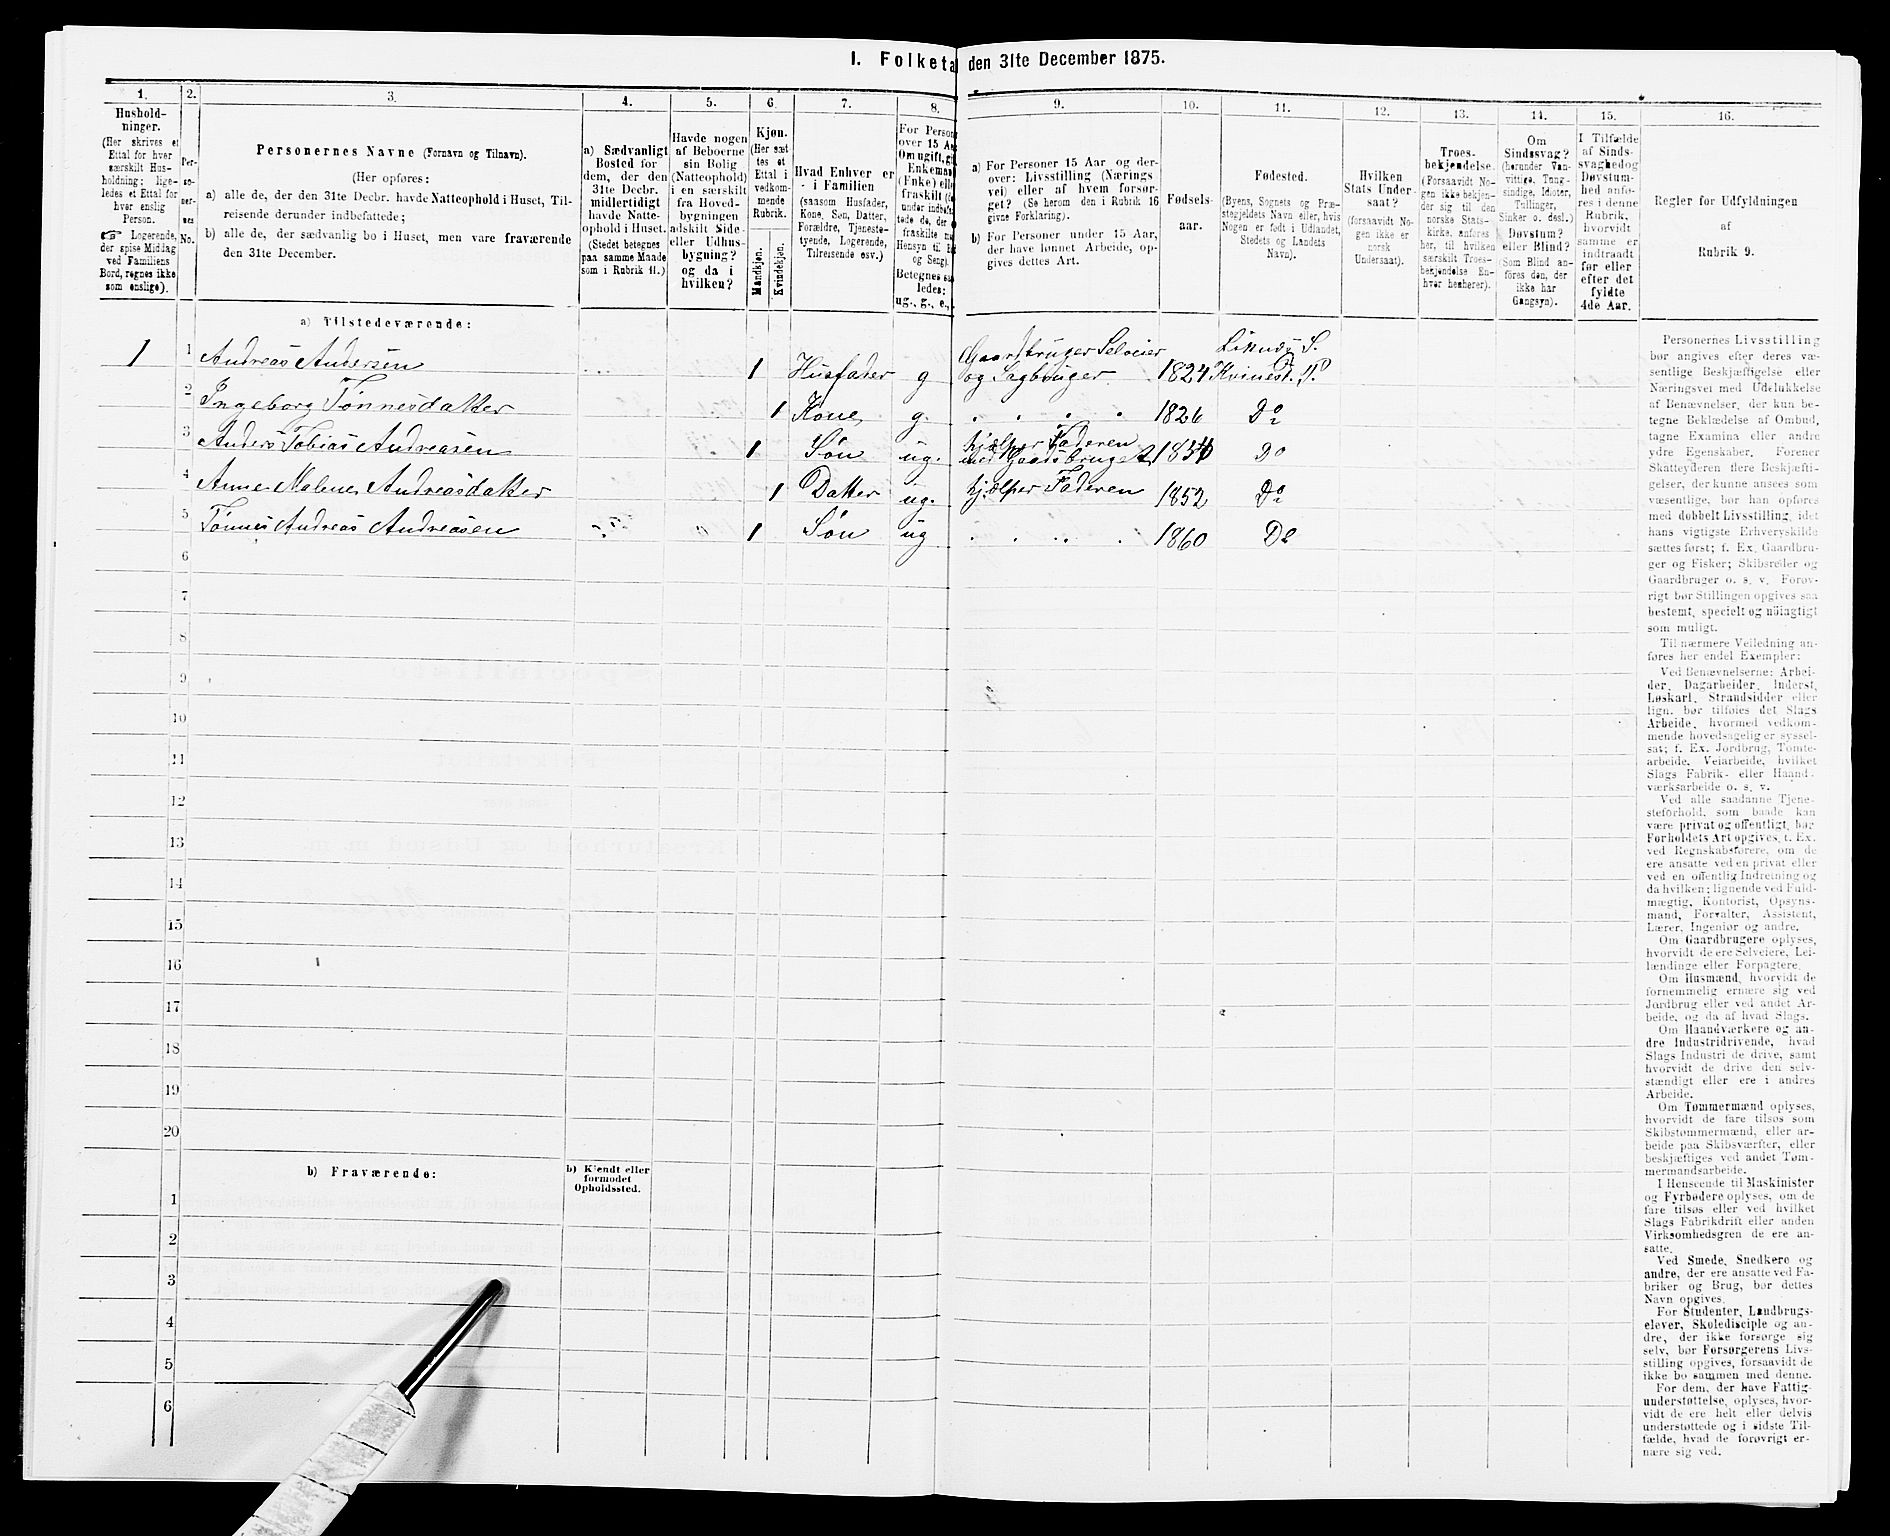 I. Folketa den 31te December 1875.
1. 2. 3. 4. 5. 6. 7. 8. 9. 10. 11. 12. 13. 14. 15. 16.
Hushold-
ninger.
(Her skrives et
Ettal for hver
særskilt Hus-
holdning; lige-
ledes et Ettal for
hver enslig
Person.
☞ Logerende,
der spise Middag
ved Familiens
Bord, regnes ikke
som enslige).
Per-
so-
ner-
nes
No.
Personernes Navne (Fornavn og Tilnavn).
(Her opføres:
a) alle de, der den 31te Decbr. havde Natteophold i Huset, Til-
reisende derunder indbefattede;
b) alle de, der sædvanlig bo i Huset, men vare fraværende
den 31te December.
a) Sædvanligt
Bosted for
dem, der den
31te Decbr.
midlertidigt
havde Natte-
ophold i Huset.
(Stedet betegnes
paa samme Maade
som i Rubrik 11.)
Havde nogen
af Beboerne
sin Bolig
(Natteophold)
i en særskilt
fra Hoved-
bygningen
adskilt Side-
eller Udhus-
bygning?
og da i
hvilken?
Kjøn.
(Her sæt
tes et
Ettal i
vedkom-
mende
Rubrik.
Mandkjøn.
Kvindekjøn.
Hvad Enhver er
i Familien
(saasom Husfader,
Kone, Søn, Datter,
Forældre, Tjeneste-
tyende, Logerende,
Tilreisende osv.)
For Person
over 15 Aa
Om ugift, gi
Enkeman
(Enke) elle
fraskilt
under indbefat-
tede de, der
fraskilte
Hensyn til B
og Seng).
Betegnes saa
ledes:
ug., g., e.,
a) For Personer 15 Aar og der-
over: Livsstilling (Nærings
vei) eller af hvem forsør-
get? (Se herom den i Rubrik 16
givne Forklaring).
b) For Personer under 15 Aar,
der have lønnet Arbeide, op-
gives dettes Art.
Fødsels-
aar.
Fødested.
(Byens, Sognets og Præ-
stegjeldets Navn eller, hvis
Nogen er født i Udlandet,
Stedets og Landets
Navn).
Hvilken
Stats Under-
saat?
(forsaavidt No-
gen ikke er
norsk
Undersaat).
Troes-
bekjendelse.
(Forsaavidt No-
gen ikke bekjen-
der sig til den
norske Stats-
kirke, anføres
her, til hvilken
særskilt Troes-
bekjendelse En-
hver henhører).
Om
Sindssvag?
(herunder Van-
vittige, Tung-
sindige, Idioter,
Tullinger,
Sinker o. desl.)
Døvstum?
eller Blind?
(Som Blind an-
føres den, der
ikke har
Gangsyn).
I Tilfælde
af Sinds-
svaghed og
Døvstum-
hed anfø-
res i denne
Rubrik,
hvorvidt
samme er
indtraadt
før eller
efter det
fyldte
4de Aar.
Regler for Udfyldningen
af
Rubrik 9.
a) Tilstedeværende:
Liknæs S.
1 1 Andreas Andersen 1 Husfader g Gaardbruger Selveier
og Sagbruger 1824 Kvinesd. P.
2 Ingeborg Tønnesdatter 1 Kone g. 1826 Do
3 Anders Tobias Andreasen 1 Søn ug. hjælper Faderen
med Gaardsbruget Do
4 Anne Malene Andreasdatter 1 Datter ug. hjælper Faderen 1852 Do
5 Tønnes Andreas Andreasen 1 Søn ug 1860 Do
6
7
8
9
10
11
12
13
14
15
16
17
18
19
20
b) Fraværende:
b) Kjendt eller
formodet
Opholdssted.
1
2
3
4
5
6
Personernes Livsstilling
bør angives efter deres væ-
sentlige Beskjæftigelse eller
Næringsvei med Udelukkelse
af Benævnelser, der kun be-
tegne Beklædelse af Ombud,
tagne Examina eller andre
ydre Egenskaber. Forener
Skatteyderen flere Beskjæfti-
gelser, der kunne ansees som
væsentlige, bør han opføres
med dobbelt Livsstilling, idet
hans vigtigste Erhverv­skilde
sættes først; f. Ex. Gaardbru-
ger og Fisker; Skibsreder og
Gaardbruger o. s. v. Forøv-
rigt bør Stillingen opgives saa
bestemt, specielt og nøiagtigt
som muligt.
Til nærmere Veiledning an-
føres her endel Exempler:
Ved Benævnelserne: Arbei-
der, Dagarbeider, Inderst,
Løskarl, Strandsidder eller
lign. bør tilføies det Slags
Arbeide, hvormed vedkom-
mende hovedsagelig er syssel-
sat; f. Ex. Jordbrug, Tomte-
arbeide, Veiarbeide, hvilket
Slags Fabrik- eller Haand-
værksarbeide o. s. v.
Ved alle saadanne Tjene-
steforhold, som baade kan
være privat og offentligt, bør
Forholdets Art opgives, f. Ex.
ved Regnskabsførere, om de
ere ansatte ved en privat eller
ved en offentlig Indretning og
da hvilken; lignende ved Fuld-
mægtig, Kontorist, Opsyns-
mand, Forvalter, Assistent,
Lærer, Ingeniør og andre.
Om Gaardbrugere oplyses,
hvorvidt de ere Selveiere, Lei-
lændinge eller Forpagtere.
Om Husmænd, hvorvidt de
fornemmelig ernære sig ved
Jordbrug eller ved andet Ar-
beide, og da af hvad Slags.
Om Haandværkere og an-
dre Industridrivende, hvad
Slags Industri de drive, samt
hvorvidt de drive den selv-
stændigt eller ere i andres
Arbeide.
Om Tømmermænd oplyses,
hvorvidt de fare tilsøs som
Skibstømmermænd, eller ar-
beide paa Skibsværfter, eller
beskjæftiges ved andet Tøm-
mermandsarbeide.
I Henseende til Maskinister
og Fyrbødere oplyses, om de
fare tilsøs eller ved hvilket
Slags Fabrikdrift eller anden
Virksomhedsgren de ere an-
satte.
Ved Smede, Snedkere og
andre, der ere ansatte ved Fa-
briker og Brug, bør dettes
Navn opgives.
For Studenter, Landbrugs-
elever, Skoledisciple og an-
dre, der ikke forsørge sig
selv, bør Forsørgerens Livs-
stilling opgives, forsaavidt de
ikke bo sammen med denne.
For dem, der have Fattig-
understøttelse, oplyses, hvor-
vidt de ere helt eller delvis
understøttede og i sidste Til-
fælde, hvad de forøvrigt er-
nære sig ved.